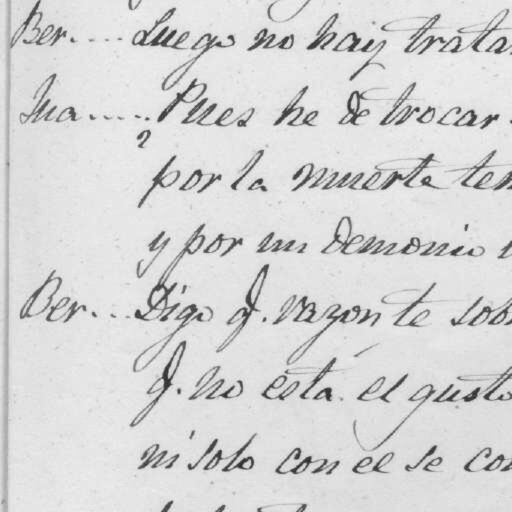 Ber.... Luego no hay tratar
Jua..... Pues he de trocar
por la muerte
y por un demonio
Ber... Digo q. razon te
q. no está el gusto
ni solo con el se